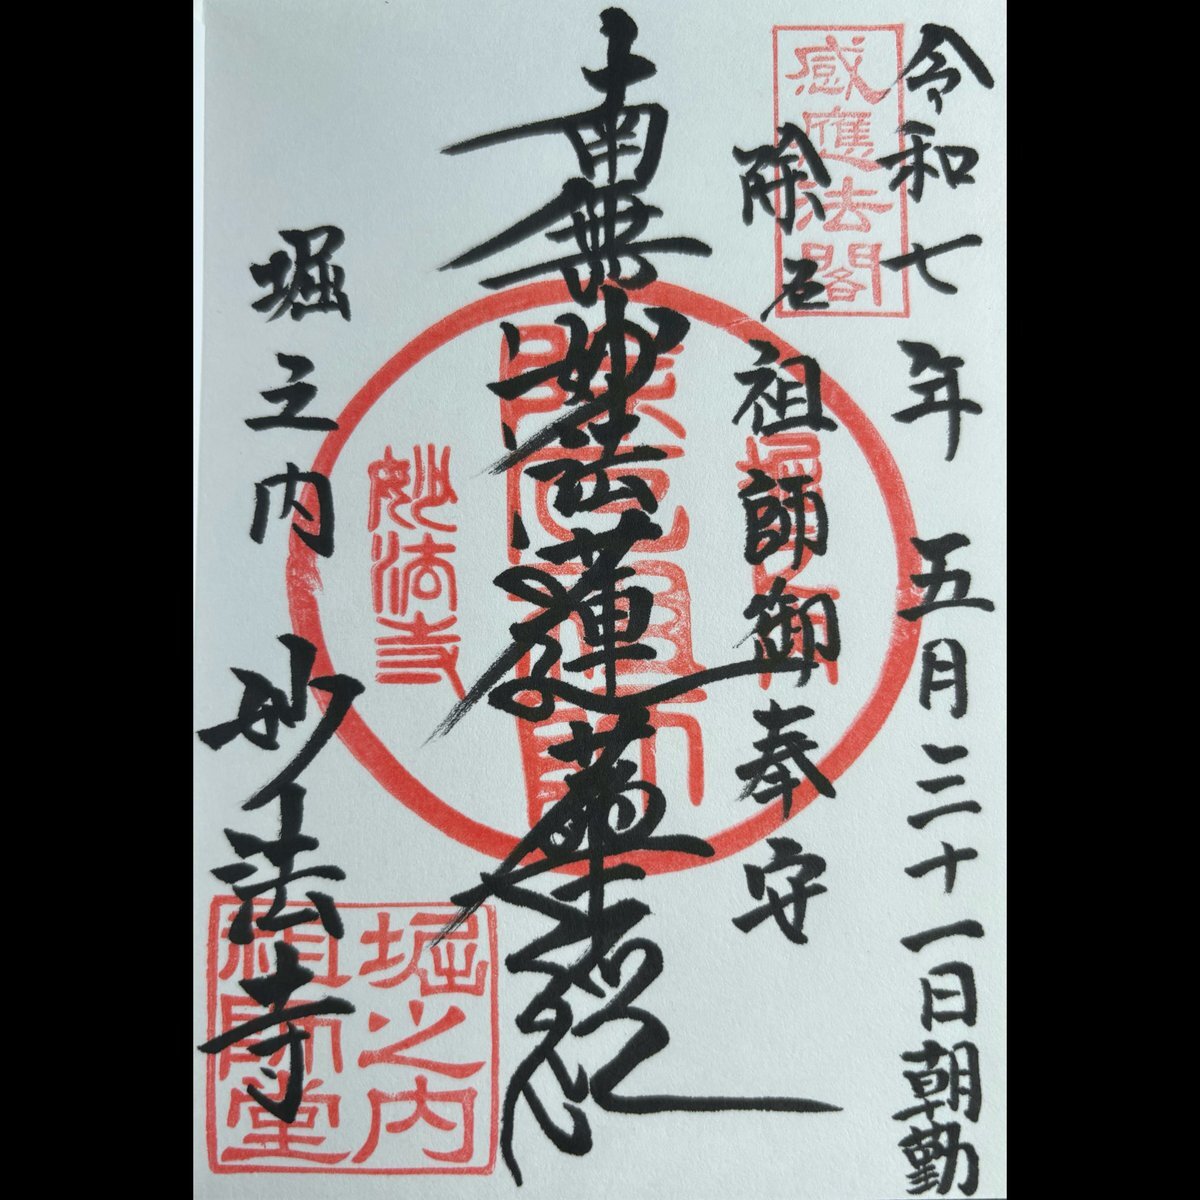 令和七年五月三十一日朝勤
感應法閣
除厄祖師御奉守
堀之内
南無妙法蓮華経
除厄祖師
妙法寺
堀之内妙法寺
堀之内
祖師堂